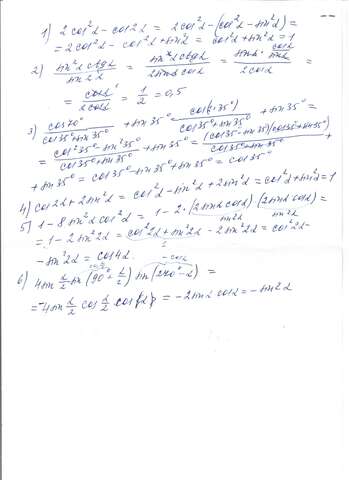 1) 2cos²α - cos2α = 2cos²α - (cos²α - sin²α) =
= 2cos²α - cos²α + sin²α = cos²α + sin²α = 1
2) sin²α ctgα / sin2α = sin²α ctgα / 2sinα cosα = sinα · cosα/sinα / 2cosα =
= cosα / 2cosα = 1/2 = 0,5
3) cos70° / cos35°+sin35° + sin35° = cos(2·35°) / cos35°+sin35° + sin35° =
= cos²35° - sin²35° / cos35°+sin35° + sin35° = (cos35°-sin35°)(cos35°+sin35°) / cos35°+sin35° +
+ sin35° = cos35° - sin35° + sin35° = cos35°
4) cos2α + 2sin²α = cos²α - sin²α + 2sin²α = cos²α + sin²α = 1
5) 1 - 8sin²α cos²α = 1 - 2·(2sinα cosα)(2sinα cosα) =
sin2α sin2α
= 1 - 2sin²2α = cos²2α + sin²2α - 2sin²2α = cos²2α -
- sin²2α = cos4α.
6) 4sin α/2 sin(90° + α/2) sin(270° - α) =
cos α/2 -cosα
= -4sin α/2 cos α/2 cosα = -2sinα cosα = -sin2α